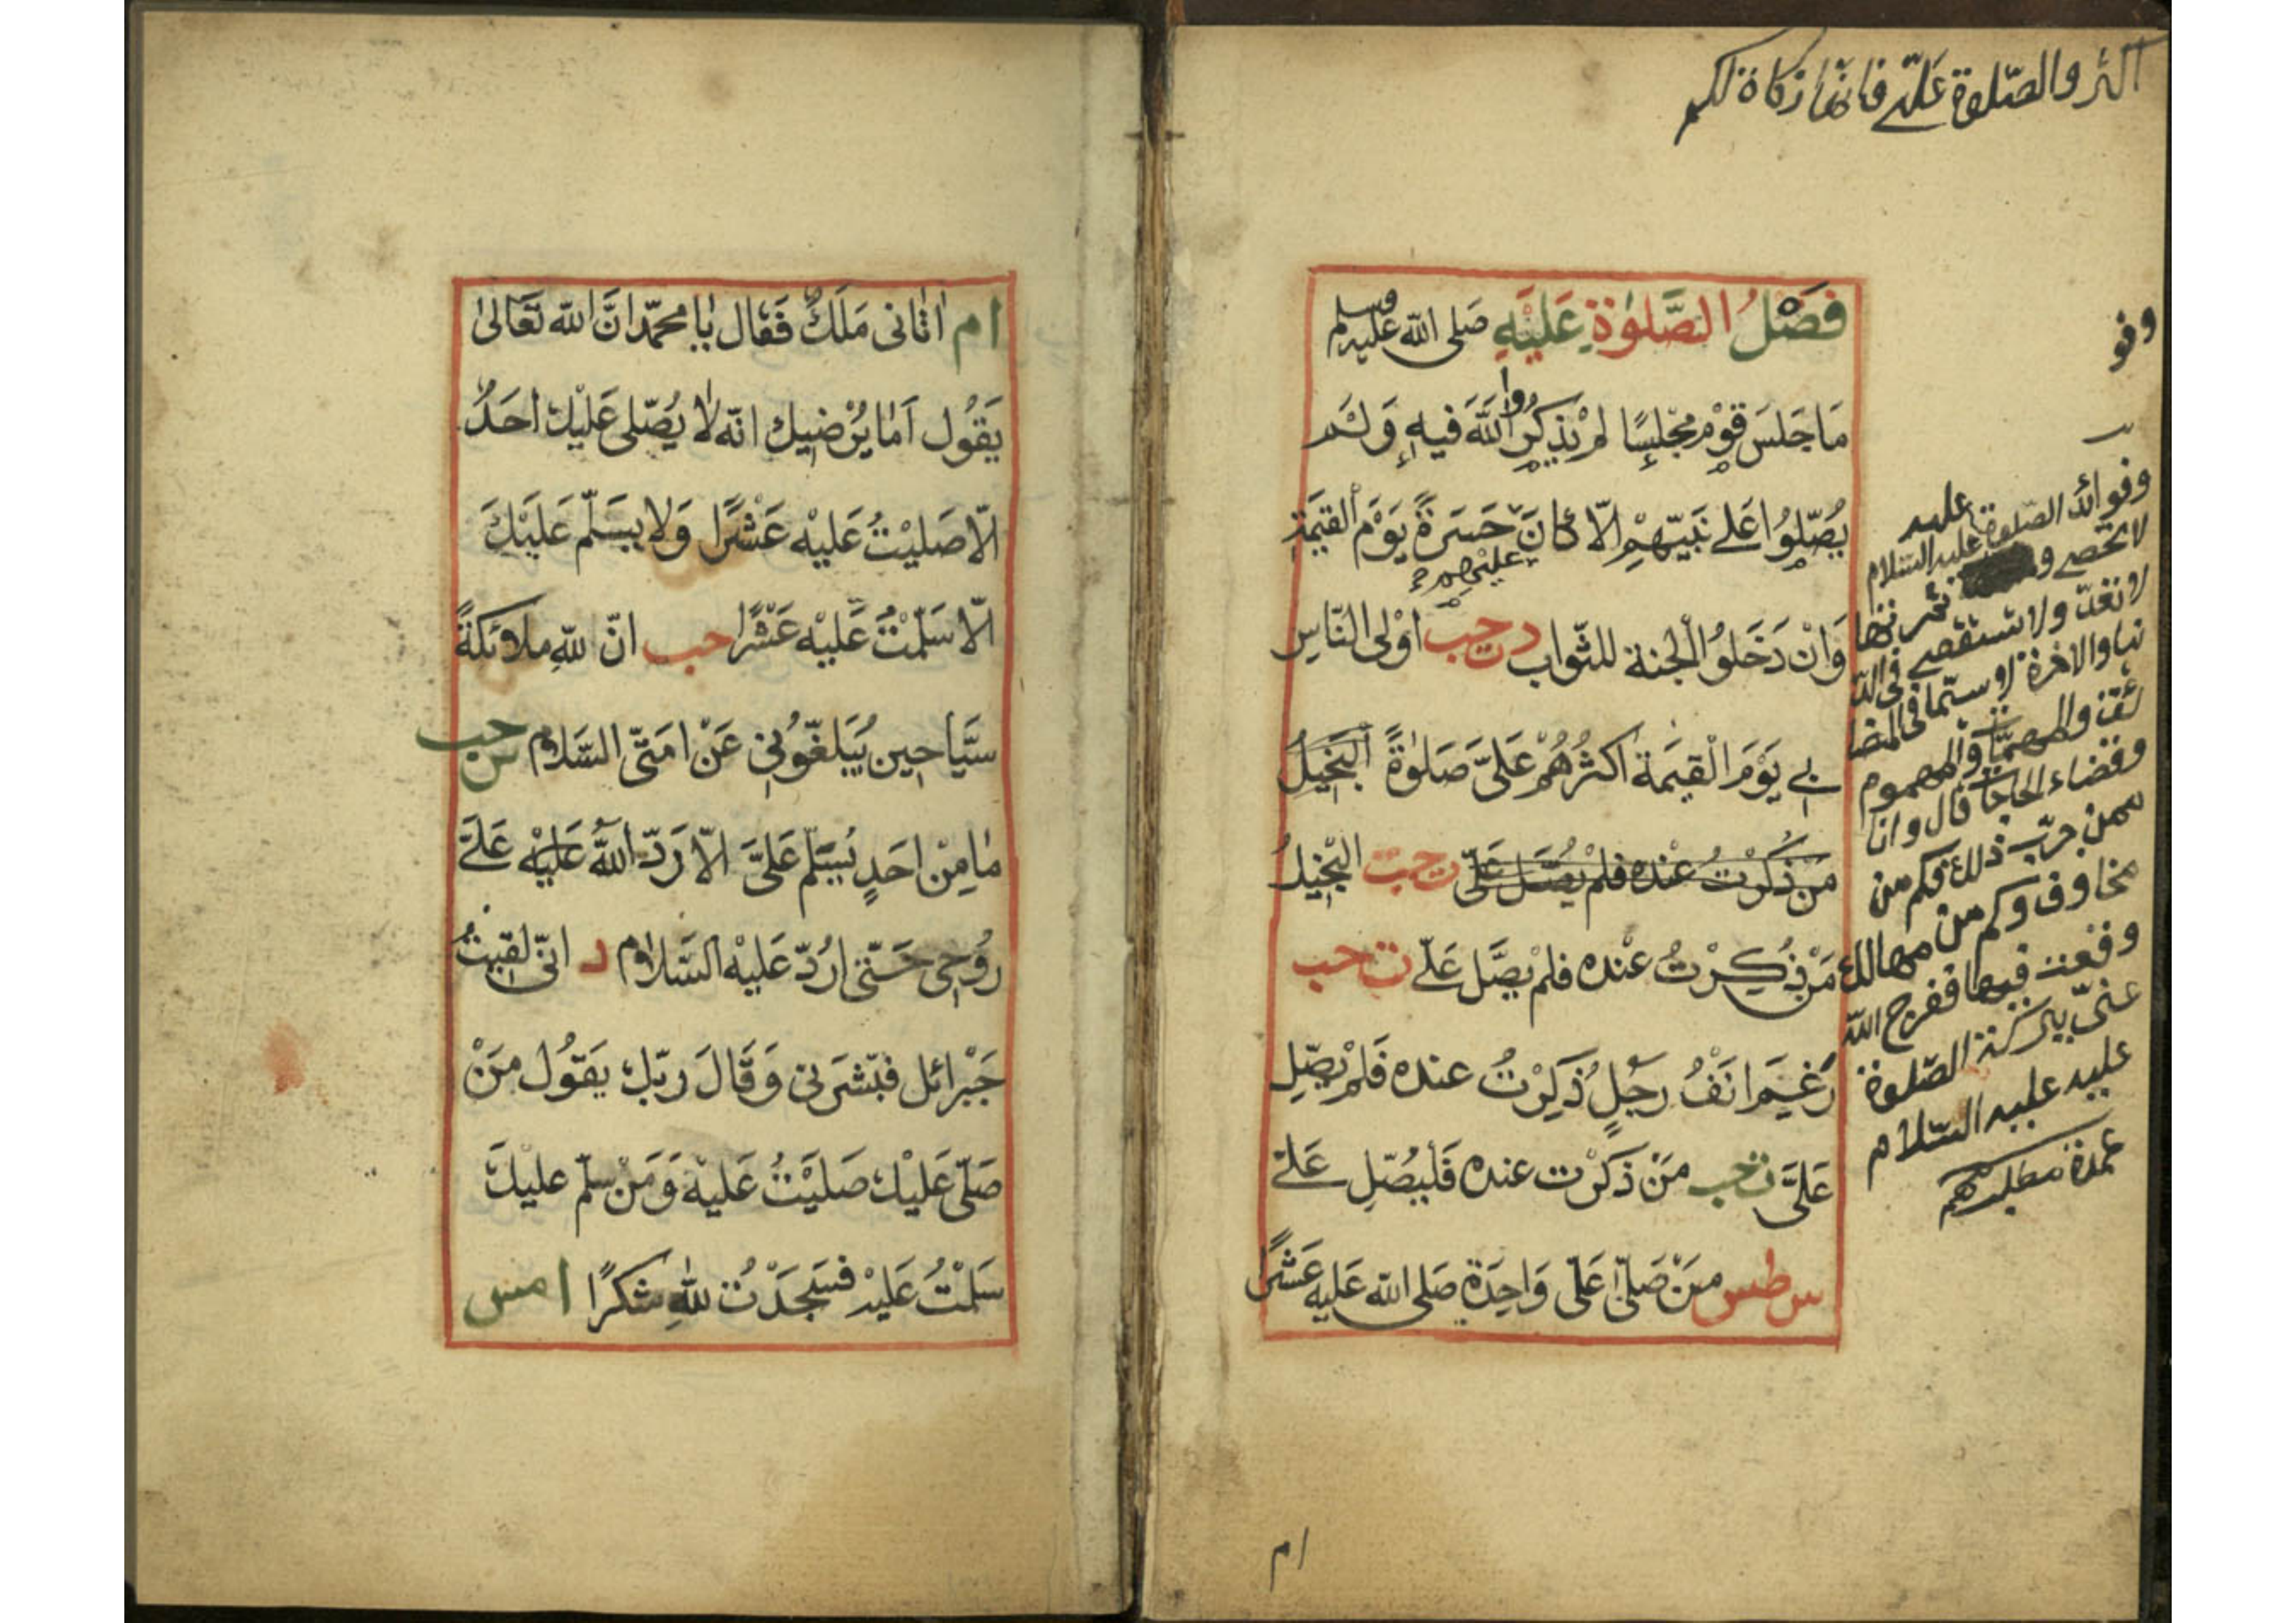 اكثروا الصّلوة عَلَيّ فانّها زكاة لكم
فَضْلُ الصَّلوٰةِ عَلَيْهِ صَلى الله عليه وسلم
مَا جَلَسَ قَوْمٌ مَجْلِسًا لَمْ يَذْكُرُوا اللّٰهَ فيهِ وَلَمْ
يُصَلّوُا عَلى نَبيّهِمْ الّا كانَ عليْهم حَسَرةً يَوْمَ القيٰمَةِ
وَانْ دَخَلوُا الْجنة للثّواب د ت حب اوْلى النّاسِ
بى يَوْمَ الْقيٰمَة اكثرُهُمْ عَلىَّ صَلوٰةً البَخيلُ
مَنْ ذُكرْتُ عنْده فلمْ يُصَّل عَلىّ ت حب البَخيلُ
مَنْ ذُكِرْتُ عنْده فلمْ يصَّل عَلىّ ت حب
رَغِمَ انَفُ رجُلٍ ذكِرْتُ عنده فَلمْ يصّلِ
عَلىَّ ت حب مَنْ ذكرْت عنده فَليُصّلِ عَلىّ
س طس مَنْ صَلىّٰ عَلىّ وَاحِدَةً صَلى الله عَليه عَشرًا
وفو
وفوائد الصّلوة عليه عليه السّلام
لا تحصى و ثمرتها
لا تعدّ ولا تستقصى فى الد
نيا والاخرة لا سيّما فى المضا
ئق والمهمّات والهموم
وقضاء الحاجات قال وانا
ممن جرّب ذلك فكم من
مخاوف وكم من مهالك
وقعت فيها ففرج الله
عنّى ببركة الصّلوة
عليه عليه السّلام
ام
ام اتٰانى مَلَكٌ فَقٰال يٰا محمّد انَّ الله تعَالىٰ
يَقُول اَمٰا يُرْضيك انّه لا يُصّلى عَليْك احَدٌ
الّا صَليْتُ عَليْه عَشْرًا وَلا يسَلّم عَليْكَ
الّا سَلّمْتُ عَليْه عَشْرًا حب انّ للهِ ملائكةً
سَيّاحين يُبَلغّوُنى عَنْ امتىّ السَّلام س حب
مٰا مِنْ احَدٍ يُسَلّم عَلىَّ الّا رَدّ اللّٰهُ عَليْه عَلىَّ
رُوُحى حَتّى ارُدّ عَليْه السَّلام د انىّ لقيتُ
جَبْرائل فبَشّرَنى وَقَالَ ربّك يَقوُل مَنْ
صَلّى عَليْك صَليْتُ عَليْه وَمَنْ سلّم عليْكَ
سَلمْتُ عَليْه فسَجَدْتُ للّٰهِ شكرًا ا مس